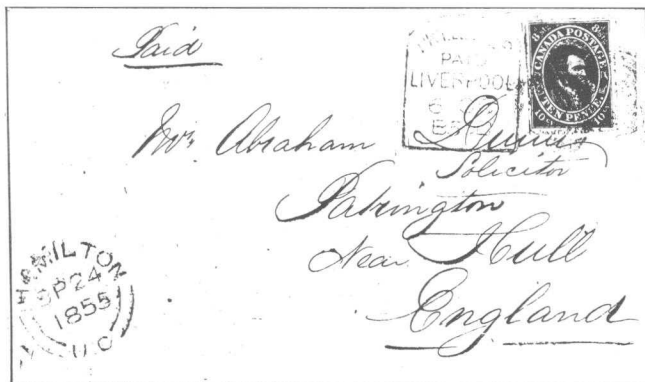 Paid
PAID
LIVERPOOL
8 CANADA POSTAGE 8
TEN PENCE
10 10
Mr. Abraham
Solicitor
Patrington
Near Hull
England
HAMILTON
SP 24
1855
U.C